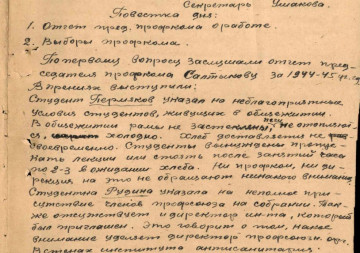 Секретарь Ушакова.
Повестка дня:
1. Отчет пред. профкома о работе.
2. Выборы профкома.
По первому вопросу заслушали отчет пред-
седателя профкома Салтыкову за 1944-45 уч. год
В прениях выступили:
Студент Пермяков указал на неблагоприятные
условия студентов, живущих в общежитии.
В общежитии рамы не застеклены, печи не отопляют-
ся, холодно. Хлеб доставляется не
своевременно. Студенты вынуждены пропус-
кать лекции или стоять после занятий часа
по 2-3 в ожидании хлеба. Ни профком, ни ди-
рекция на это не обращают никакого внимания.
Студентка Рудина указала на неполное при-
сутствие членов профсоюза на собрании. Так-
же отсутствует и директор ин-та, который
был приглашен. Это говорит о том, какое
внимание уделяет директор профсоюзн. орг.
В стенах института антисанитария.